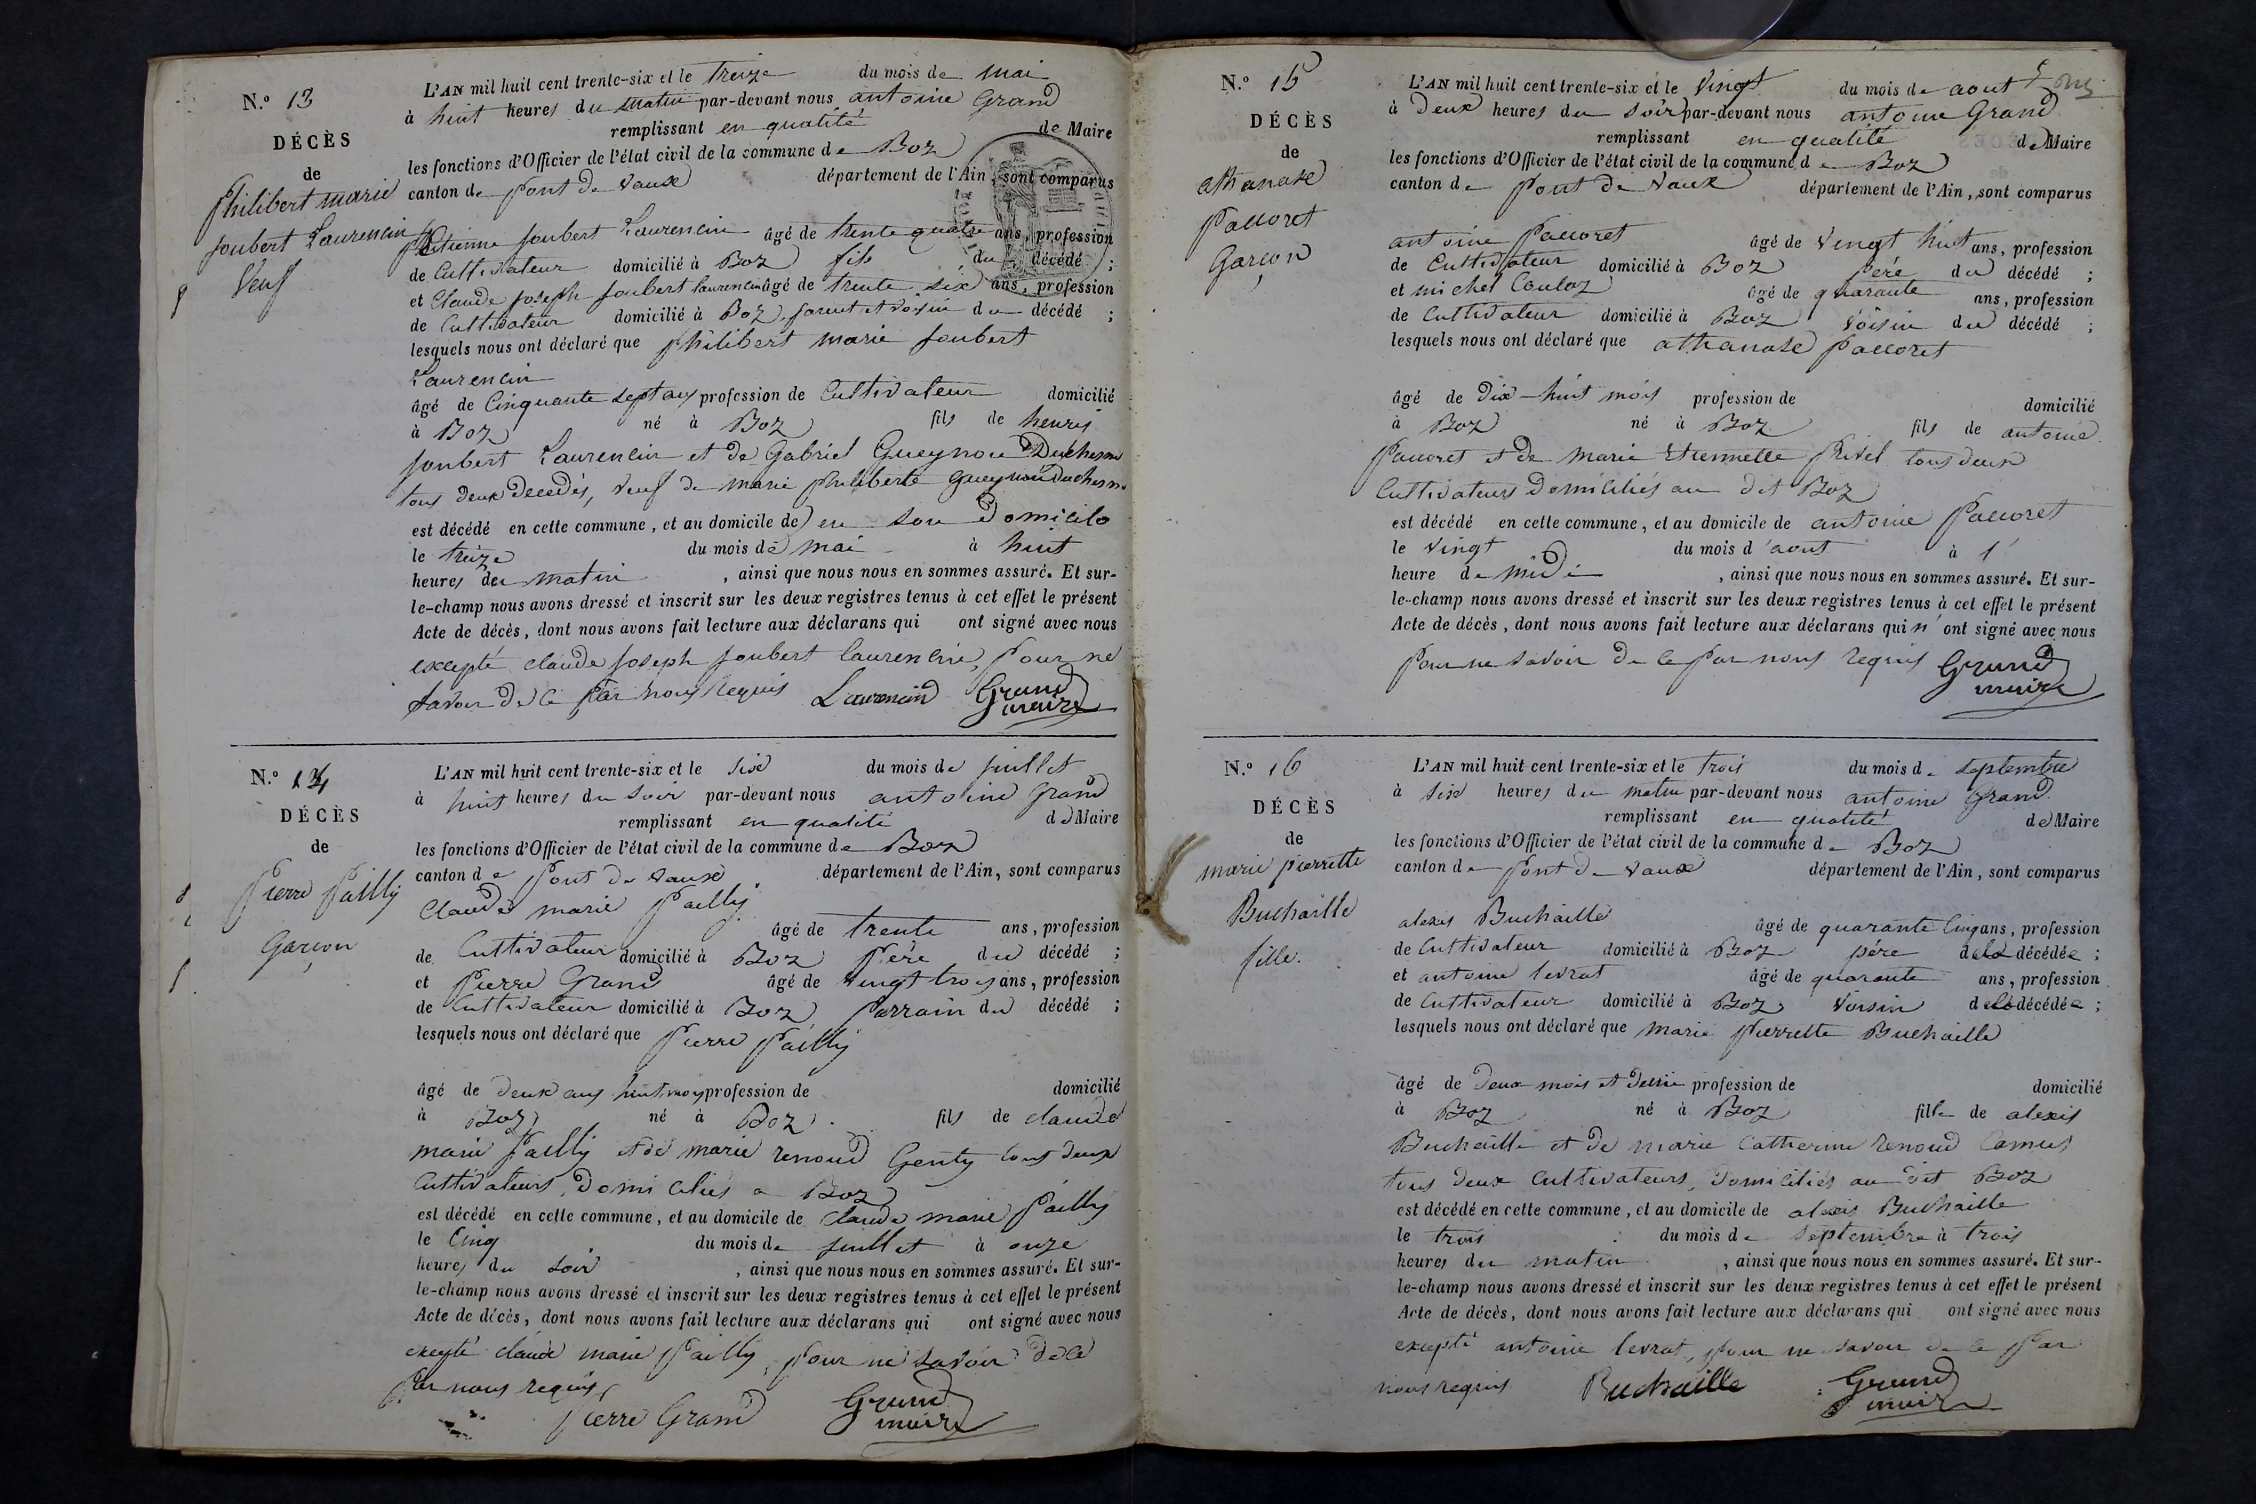 N.º 13
DÉCÈS
de
Philibert marie
Joubert Laurencin
Veuf
L'AN mil huit cent trente-six et le treize du mois de mai
à huit heures du matin par-devant nous antoine Grand
remplissant en qualité de Maire
les fonctions d'Officier de l'état civil de la commune de Boz
canton de Pont de Vaux département de l'Ain, sont comparus
Etienne Joubert Laurencin âgé de trente quatre ans, profession
de Cultivateur domicilié à Boz fils du décédé ;
et Claude Joseph Joubert laurencin âgé de trente six ans, profession
de Cultivateur domicilié à Boz, parent et voisin du décédé ;
lesquels nous ont déclaré que Philibert marie Joubert
Laurencin
âgé de Cinquante sept ans profession de Cultivateur domicilié
à Boz né à Boz fils de henrij
Joubert Laurencin et de Gabriel Gueynon Duchesne
tous deux Decedés, Veuf de marie philiberte gueynon duchesne
est décédé en cette commune, et au domicile de en son Domicile
le treize du mois de mai à huit
heures du matin , ainsi que nous nous en sommes assuré. Et sur-
le-champ nous avons dressé et inscrit sur les deux registres tenus à cet effet le présent
Acte de décès, dont nous avons fait lecture aux déclarans qui ont signé avec nous
excepté claude Joseph Joubert laurencin, Pour ne
savoir de ce Par nous Requis Laurencin Grand
maire
N.º 14
DÉCÈS
de
Pierre Pailly
Garçon
L'AN mil huit cent trente-six et le six du mois de Juillet
à huit heures du soir par-devant nous antoine grand
remplissant en qualité de Maire
les fonctions d'Officier de l'état civil de la commune de Boz
canton de Pont de Vaux département de l'Ain, sont comparus
Claude marie Pailly
âgé de trente ans, profession
de Cultivateur domicilié à Boz Père du décédé ;
et Pierre Grand âgé de Vingt trois ans, profession
de Cultivateur domicilié à Boz Parrain du décédé ;
lesquels nous ont déclaré que Pierre Pailly
âgé de deux ans huit mois profession de domicilié
à Boz né à Boz fils de claude
marie Pailly et de marie renoud Genty tous deux
Cultivateurs, Domiciliés a Boz
est décédé en cette commune, et au domicile de Claude marie Pailly
le Cinq du mois de Juillet à onze
heures du soir , ainsi que nous nous en sommes assuré. Et sur-
le-champ nous avons dressé et inscrit sur les deux registres tenus à cet effet le présent
Acte de décès, dont nous avons fait lecture aux déclarans qui ont signé avec nous
excepté claude marie Pailly, Pour ne savoir de ce
Par nous requis
Pierre Grand Grand
maire
N.º 15
DÉCÈS
de
athanase
Paccoret
Garçon
L'AN mil huit cent trente-six et le Vingt du mois de aout
à Deux heures du Soir par-devant nous antoine Grand
remplissant en qualité de Maire
les fonctions d'Officier de l'état civil de la commune de Boz
canton de Pont de Vaux département de l'Ain, sont comparus
antoine Paccoret âgé de Vingt huit ans, profession
de Cultivateur domicilié à Boz Père du décédé ;
et michel Couloz âgé de quarante ans, profession
de Cultivateur domicilié à Boz Voisin du décédé ;
lesquels nous ont déclaré que athanase Paccoret
âgé de Dix-huit mois profession de domicilié
à Boz né à Boz fils de antoine
Paccoret et de marie etiennette Privel tous deux
Cultivateurs Domiciliés au dit Boz
est décédé en cette commune, et au domicile de antoine Paccoret
le Vingt du mois d'aout à 1
heure de midi , ainsi que nous nous en sommes assuré. Et sur-
le-champ nous avons dressé et inscrit sur les deux registres tenus à cet effet le présent
Acte de décès, dont nous avons fait lecture aux déclarans qui n'ont signé avec nous
Pour ne savoir de ce Par nous requis Grand
maire
N.º 16
DÉCÈS
de
marie pierrette
Buchaille
fille.
L'AN mil huit cent trente-six et le trois du mois de septembre
à six heures du matin par-devant nous antoine Grand
remplissant en qualité de Maire
les fonctions d'Officier de l'état civil de la commune de Boz
canton de Pont de Vaux département de l'Ain, sont comparus
alexis Buchaille âgé de quarante Cinq ans, profession
de Cultivateur domicilié à Boz père de la décédée ;
et antoine levrat âgé de quarante ans, profession
de Cultivateur domicilié à Boz Voisin de la décédée ;
lesquels nous ont déclaré que marie Pierrette Buchaille
âgé de Deux mois et Demie profession de domicilié
à Boz né à Boz fille de alexis
Buchaille et de marie Catherine renoud Camus
tous deux Cultivateurs, Domiciliés au dit Boz
est décédé en cette commune, et au domicile de alexis Buchaille
le trois du mois de septembre à trois
heures du matin , ainsi que nous nous en sommes assuré. Et sur-
le-champ nous avons dressé et inscrit sur les deux registres tenus à cet effet le présent
Acte de décès, dont nous avons fait lecture aux déclarans qui ont signé avec nous
excepté antoine levrat, Pour ne savoir de ce Par
nous requis Buchaille Grand
maire